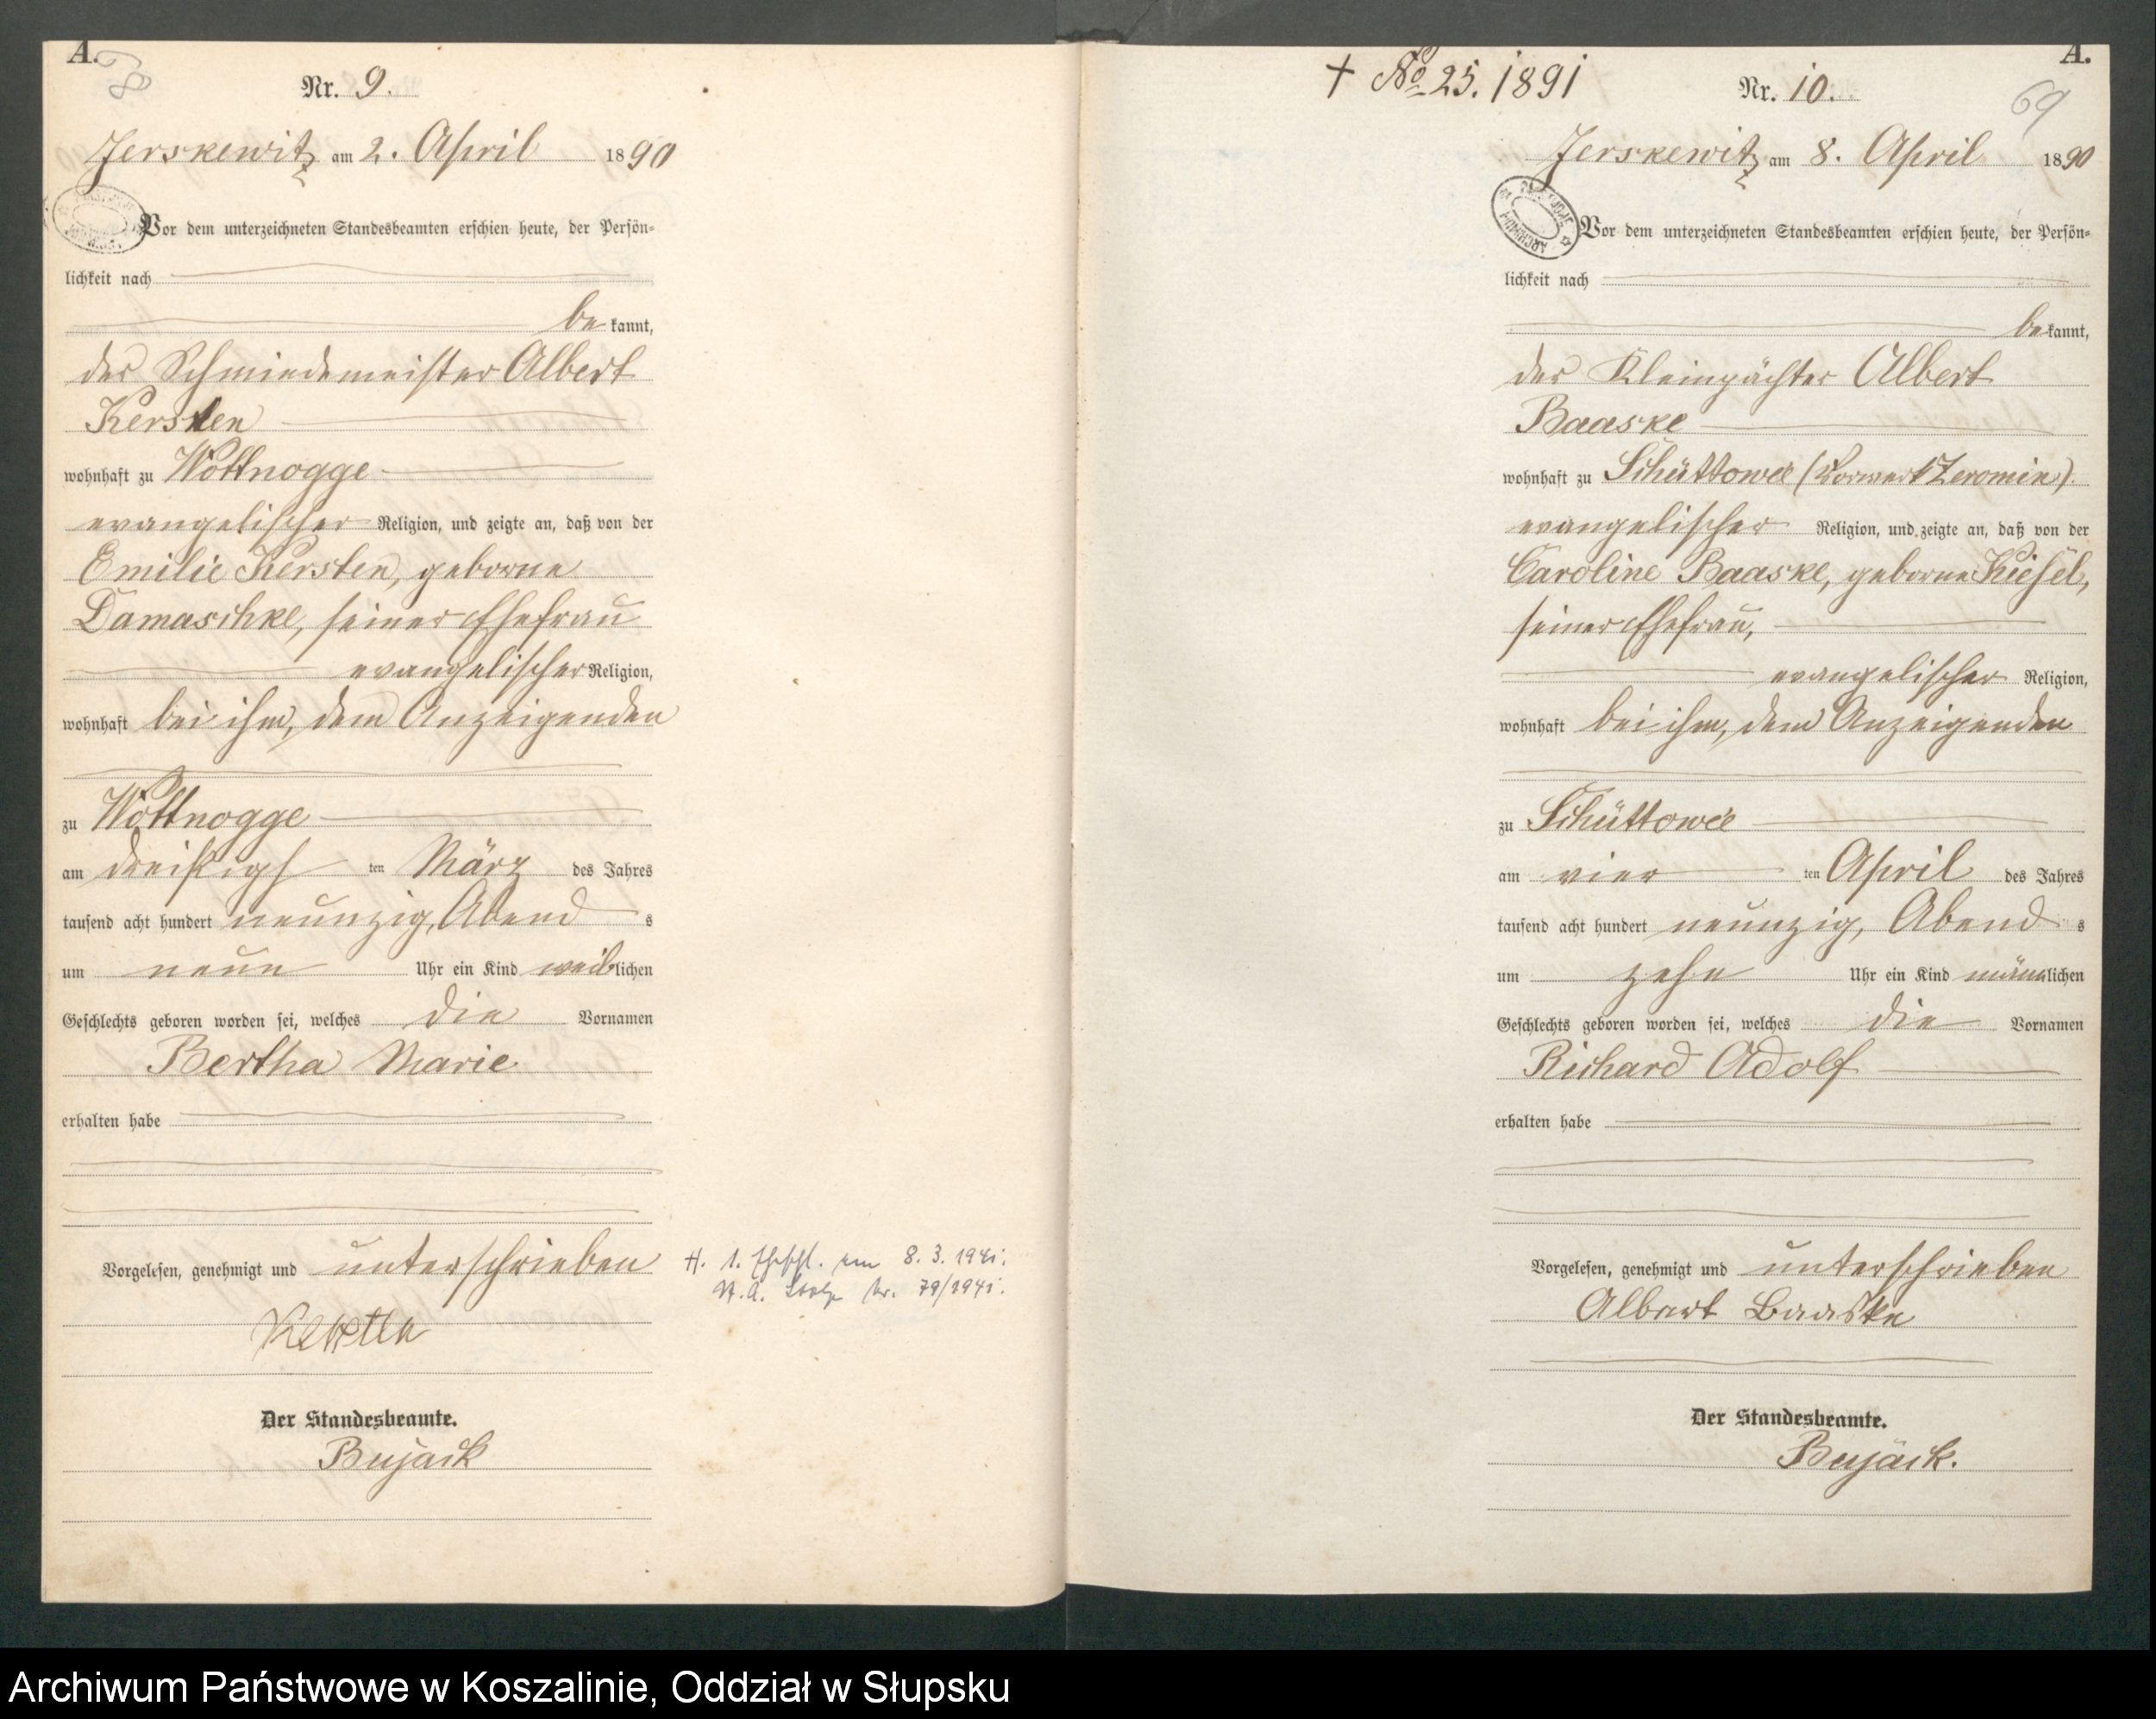 A.
68
Nr. 9.
Jerskewitz am 2. April 1890
Vor dem unterzeichneten Standesbeamten erschien heute, der Persön-
lichkeit nach
be kannt,
der Schmiedemeister Albert
Kersten
wohnhaft zu Wottnogge
evangelischer Religion, und zeigte an, daß von der
Emilie Kersten, geborne
Damaschke, seiner Ehefrau
evangelischer Religion,
wohnhaft bei ihm, dem Anzeigenden
zu Wottnogge
am dreißigs ten März des Jahres
tausend acht hundert neunzig, Abend s
um neun Uhr ein Kind weiblichen
Geschlechts geboren worden sei, welches die Vornamen
Bertha Marie
erhalten habe
Vorgelesen, genehmigt und unterschrieben
Kersten
H. 1. Eheschl. am 8. 3. 1941.
St. A. Stolp Nr. 79/1941.
Der Standesbeamte.
Bujack
A.
+ No 25. 1891
Nr. 10.
69
Jerskewitz am 8. April 1890
Vor dem unterzeichneten Standesbeamten erschien heute, der Persön-
lichkeit nach
be kannt,
der Kleinpächter Albert
Baaske
wohnhaft zu Schüttower (Vorwerk Zeromin).
evangelischer Religion, und zeigte an, daß von der
Caroline Baaske, geborne Kiesel,
seiner Ehefrau,
evangelischer Religion,
wohnhaft bei ihm, dem Anzeigenden
zu Schüttower
am vier ten April des Jahres
tausend acht hundert neunzig, Abend s
um zehn Uhr ein Kind männlichen
Geschlechts geboren worden sei, welches die Vornamen
Richard Adolf
erhalten habe
Vorgelesen, genehmigt und unterschrieben
Albert Baaske
Der Standesbeamte.
Bujack.
Archiwum Państwowe w Koszalinie, Oddział w Słupsku